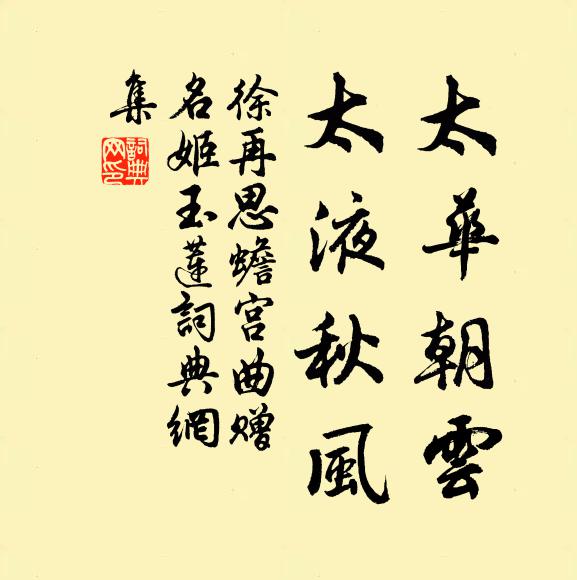 太華朝雲
太液秋風
徐再思蟾宮曲赠
名姬玉蓮詞典網
集
詞典
网印